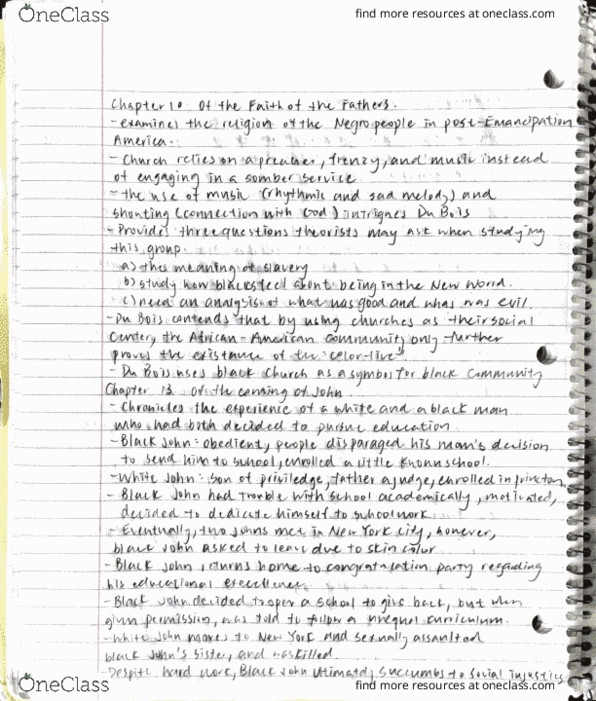 OneClass
find more resources at oneclass.com
Chapter 10 Of the Faith of the Fathers.
- examines the religion of the Negro people in post-Emancipation
America.
- Church relies on a preacher, frenzy, and music instead
of engaging in a somber service
- the use of music (rhythmic and sad melody) and
shouting (connection with God) intrigues Du Bois
- Provides three questions theorists may ask when studying
this group.
a) the meaning of slavery
b) study how blacks feel about being in the New World.
c) need an analysis of what was good and what was evil.
- Du Bois contends that by using churches as their social
center, the African-American community only further
proves the existance of the "color-line".
- Du Bois uses black church as a symbol for black community
Chapter 13 Of the coming of John.
- Chronicles the experience of a white and a black man
who had both decided to pursue education.
- Black John: obedient, people disparaged his mom's decision
to send him to school, enrolled a little known school.
- White John: son of priviledge, father a judge, enrolled in princeton.
- Black John had trouble with school academically, motivated,
decided to dedicate himself to schoolwork.
- Eventually, two Johns met in New York city, however,
black John asked to leave due to skin color
- Black John returns home to congratulation party regarding
his educational excellence.
- Black John decided to open a school to give back, but when
given permission, was told to follow a unequal curriculum.
- White John moves to New York and sexually assaulted
black John's sister, and was killed.
- Despite hard work, Black John ultimately succumbs to social injustics
OneClass
find more resources at oneclass.com